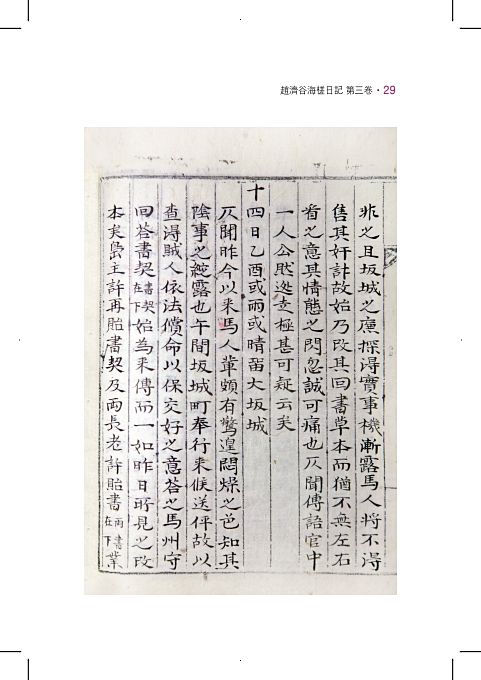 趙濟谷海槎日記 第三卷 • 29
非之且坂城之廉探得實事機漸露馬人將不得
售其奸計故始乃改其回書草本而猶不無左右
看之意其情態之閃忽誠可痛也仄聞傳語官中
一人公然逃走極甚可疑云矣
十四日乙酉或雨或晴留大坂城
仄聞昨今以來馬人輩頗有驚遑悶燥之色知其
陰事之綻露也午間坂城町奉行來候送伻故以
查得賊人依法償命以保交好之意答之馬州守
回答書契書契在下始爲來傳而一如昨日所見之改
本矣島主許再貽書契及兩長老許貽書兩書在下業